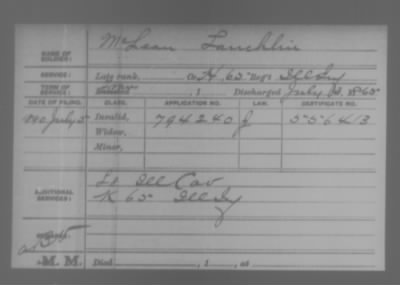 NAME OF SOLDIER: McLean Lauchlin
SERVICE: Late rank, Co. H, 65" Reg't Ill Inf
TERM OF SERVICE: 1 Discharged July 1865
DATE OF FILING. CLASS. APPLICATION NO. LAW. CERTIFICATE NO.
July 5 Invalid, 794240 J 556413
Widow,
Minor,
ADDITIONAL SERVICES: Ill Cav
K 65 Ill Inf
M. M. Died , 1 , at